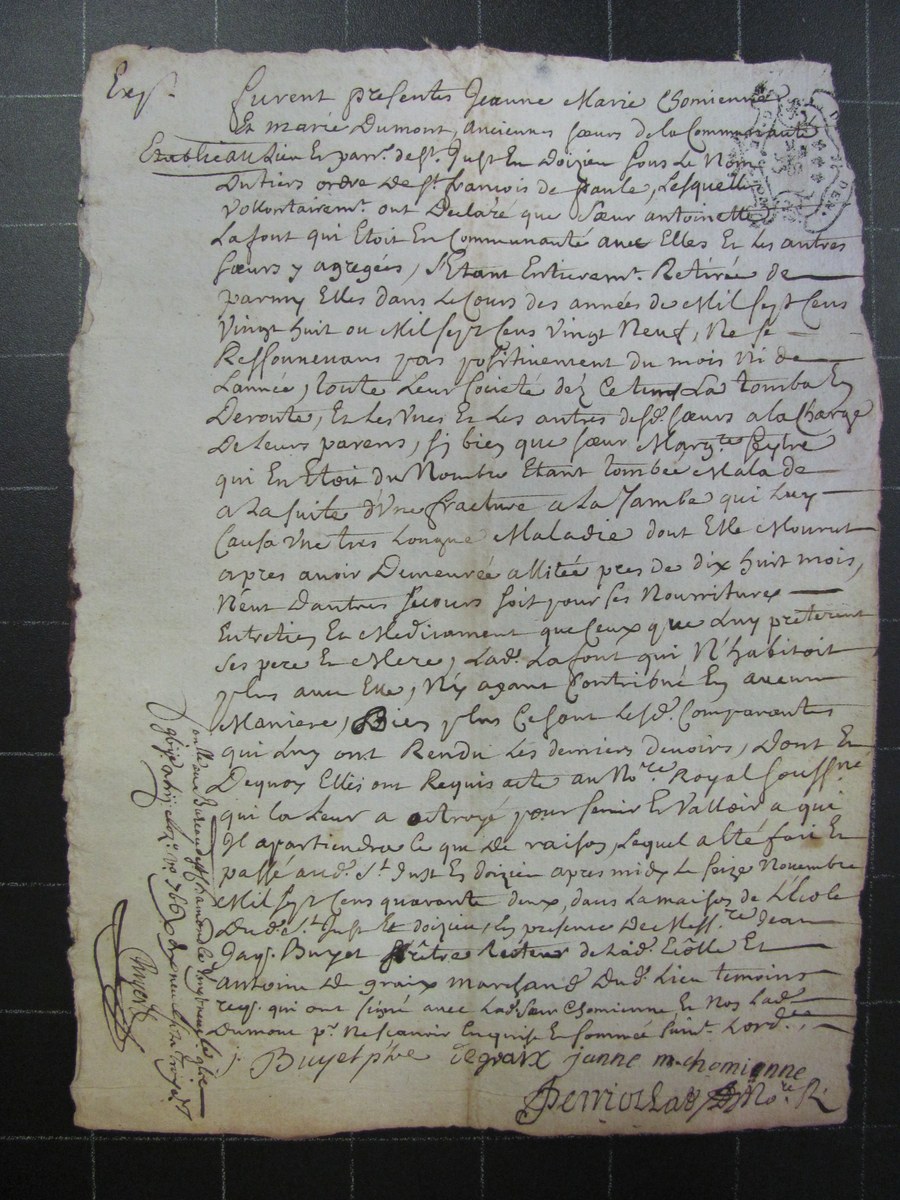 Exp.
furent presentes Jeanne Marie Chomienne
Et marie Dumont, anciennes sœurs de la Communauté
Etablie au Lieu Et parr. de St. Just En Doizieu sous le Nom
Du tiers ordre De St. francois de paule, Lesquelles
Vollontairemt. ont Declaré que Sœur antoinette
Lafont qui Etoit En Communauté avec Elles Et Les autres
sœurs y agregées, s'Etant Entieremt. Retirée de
parmy Elles dans Le Cours des années de Mil sept Cens
Vingt huit ou Mil sept Cens Vingt Neuf, Ne se
Ressouvenans pas positivement du mois Ni de
L'année, toute Leur Societé dez Ce tems La tomba En
Deroute, Et Les Unes Et Les autres desd. sœurs a la Charge
De Leurs parens, si bien que sœur Margte.
qui En Etoit du Nombre Etant tombée Malade
a La suite d'Une fracture a La Jambe qui Luy
Causa Une tres Longue Maladie dont Elle Mourut
apres avoir Demeurée allitée pres de dix huit mois,
N'eut D'autres secours soit pour ses Nourritures
Entretien Et Medicament que Ceux que Luy preterent
ses pere Et Mere, Lad. Lafont qui N'habitoit
plus avec Elle, N'y ayant Contribué En aucune
Maniere, Bien plus Ce sont Lesd. Comparantes
qui Luy ont Rendu Les derniers devoirs, Dont Et
Dequoy Elles ont Requis acte au Nore. Royal soussné.
qui la Leur a octroyé pour servir Et Valloir a qui
Il apartiendra Ce que De raison, Lequel a été fait Et
passé aud. St. Just En doizieu apres midy Le seize Novembre
Mil sept Cens quarante deux, dans La maison de L'Ecole
Dud. St. Just En doizieu, En presence De Messre. Jean
Buyet prêtre Recteur de Lad. Ecolle Et
antoine De graix Marchand Dud. Lieu temoins
req. qui ont signé avec Lad. sœur Chomienne Et Non Lad.
Dumont pr. Ne scavoir Enquise Et sommée suivt. L'ord.
J. Buyet ptre Degraix janne m chomienne
Nore. R.